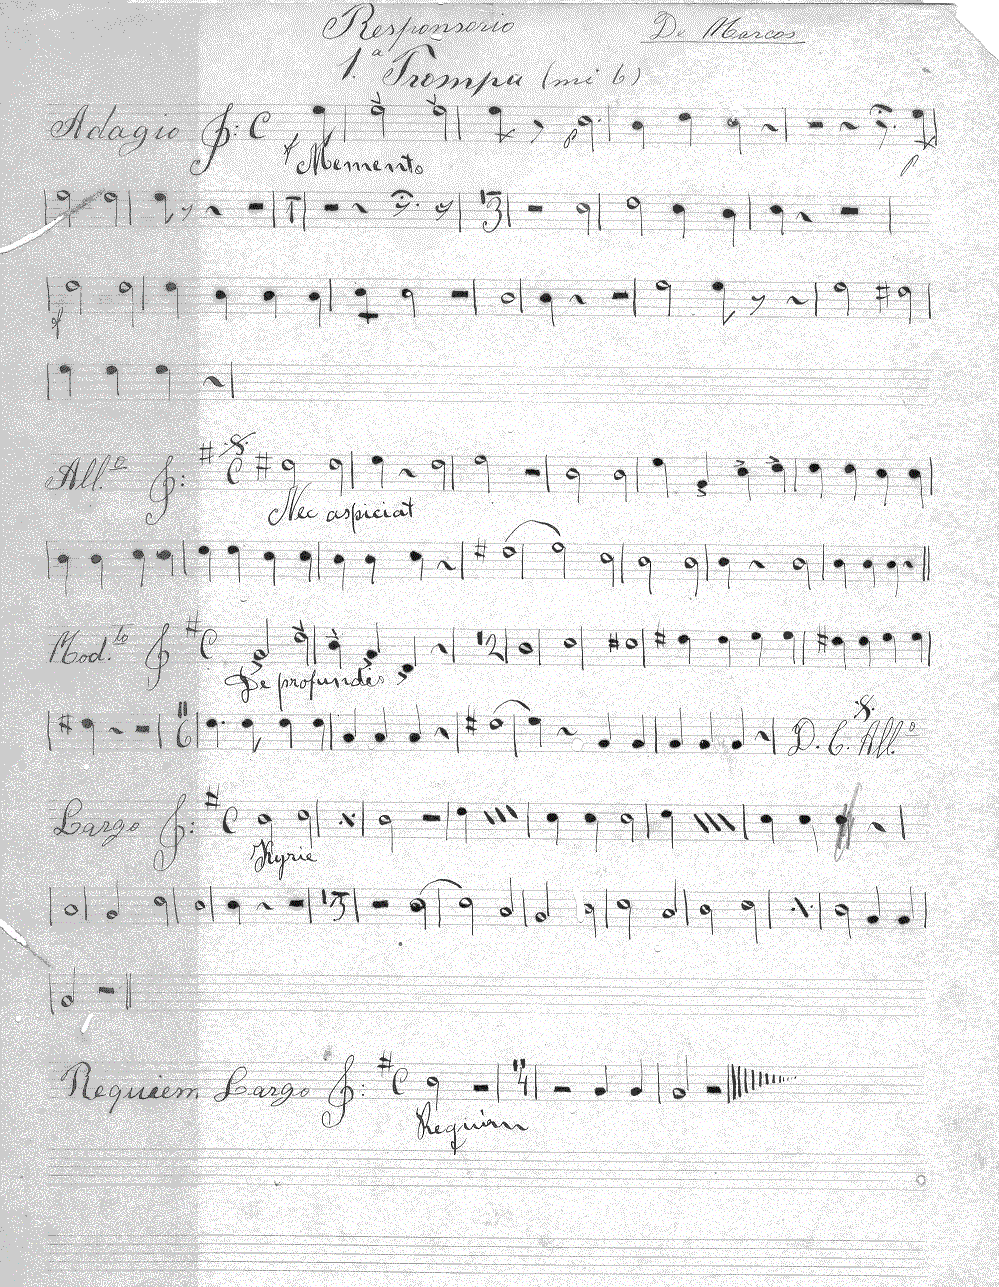 Responsorio De Marcos
1.ª Trompa (mi b)
Adagio
Memento
13
All.º
Nec aspiciat
Mod.to
De profundis
12
6
D. C. All.º
Largo
Kyrie
13
Requiem Largo
4
Requiem